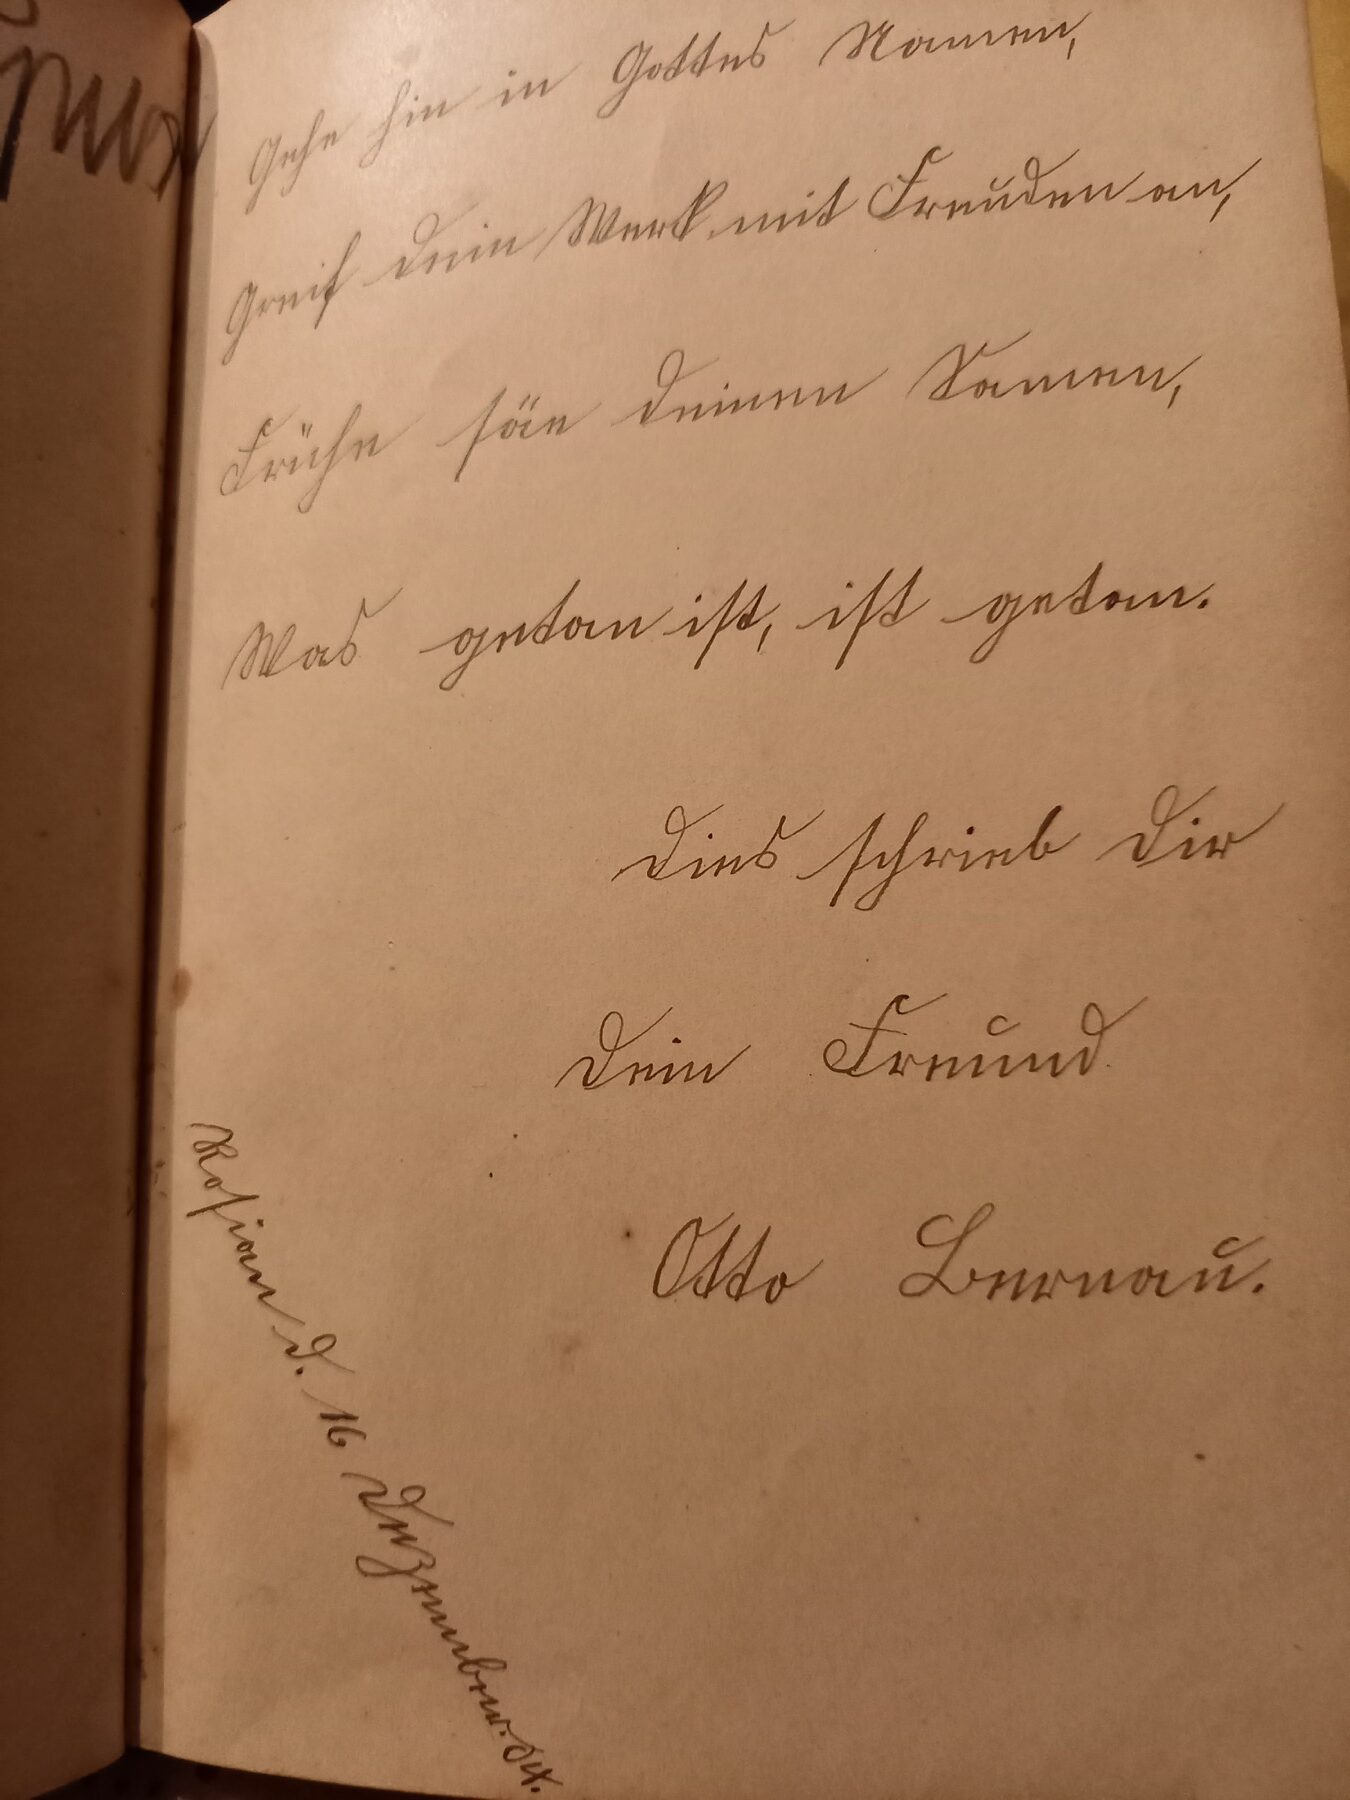 Gehe hin in Gottes Namen,
Greif dein Werk mit Freuden an,
Frühe säe deinen Samen,
Was getan ist, ist getan.
Dies schrieb Dir
Dein Freund
Otto Bernau.
d. 16 Dezember.